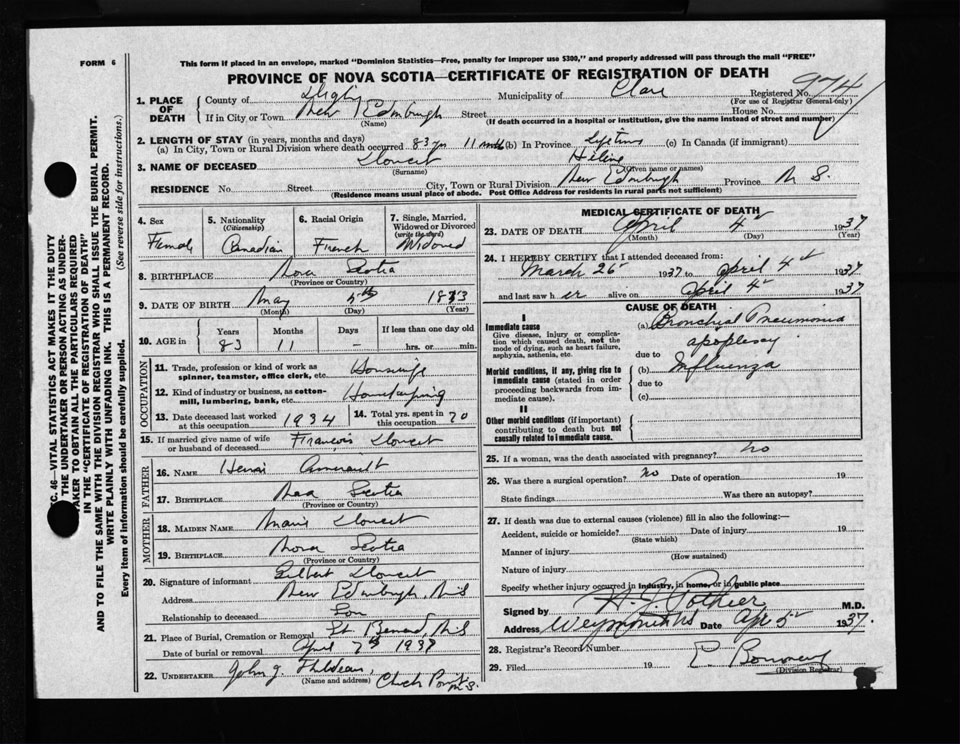 FORM 6
This form if placed in an envelope, marked "Dominion Statistics—Free, penalty for improper use $300," and properly addressed will pass through the mail "FREE"
PROVINCE OF NOVA SCOTIA—CERTIFICATE OF REGISTRATION OF DEATH
974
1. PLACE OF DEATH
County of Digby Municipality of Clare Registered No.
(For use of Registrar General only)
If in City or Town New Edinburgh Street House No.
(Name) (If death occurred in a hospital or institution, give the name instead of street and number)
2. LENGTH OF STAY (in years, months and days)
(a) In City, Town or Rural Division where death occurred 83 yrs 11 mths (b) In Province Lifetime (c) In Canada (if immigrant)
3. NAME OF DECEASED Doucet Hélène
(Surname) (Given name or names)
RESIDENCE No. Street City, Town or Rural Division New Edinburgh Province N S.
(Residence means usual place of abode. Post Office Address for residents in rural parts not sufficient)
4. Sex
Female
5. Nationality
(Citizenship)
Canadian
6. Racial Origin
French
7. Single, Married, Widowed or Divorced
(write the word)
Widowed
8. BIRTHPLACE Nova Scotia
(Province or Country)
9. DATE OF BIRTH May 5th
(Month) (Day) (Year)
10. AGE in
Years Months Days If less than one day old
83 11 - hrs. or min.
OCCUPATION
11. Trade, profession or kind of work as spinner, teamster, office clerk, etc. Housewife
12. Kind of industry or business, as cotton-mill, lumbering, bank, etc. Housekeeping
13. Date deceased last worked at this occupation 1934
14. Total yrs. spent in this occupation 70
15. If married give name of wife or husband of deceased François Doucet
FATHER
16. NAME Henri Amirault
17. BIRTHPLACE Nova Scotia
(Province or Country)
MOTHER
18. MAIDEN NAME Marie Doucet
19. BIRTHPLACE Nova Scotia
(Province or Country)
20. Signature of informant Gilbert Doucet
Address New Edinburgh, N.S
Relationship to deceased Son
21. Place of Burial, Cremation or Removal St. Bernard, N.S
Date of burial or removal April 7th 1937
22. UNDERTAKER John J. Church Point N.S.
(Name and address)
MEDICAL CERTIFICATE OF DEATH
23. DATE OF DEATH April 4th 1937
(Month) (Day) (Year)
24. I HEREBY CERTIFY that I attended deceased from:
March 26 1937 to April 4th 1937
and last saw her alive on April 4th 1937
CAUSE OF DEATH
I
Immediate cause
Give disease, injury or complication which caused death, not the mode of dying, such as heart failure, asphyxia, asthenia, etc.
(a) Bronchial Pneumonia
apoplexy
due to
Morbid conditions, if any, giving rise to immediate cause (stated in order proceeding backwards from immediate cause).
(b) Influenza
due to
(c)
II
Other morbid conditions (if important) contributing to death but not causally related to immediate cause.
25. If a woman, was the death associated with pregnancy? No
26. Was there a surgical operation? No Date of operation 19
State findings Was there an autopsy?
27. If death was due to external causes (violence) fill in also the following:—
Accident, suicide or homicide? Date of injury 19
(State which)
Manner of injury
(How sustained)
Nature of injury
Specify whether injury occurred in industry, in home, or in public place
Signed by H. J. Pothier M.D.
Address Weymouth N.S Date Apr 5th 1937.
28. Registrar's Record Number
29. Filed 19
(Division Registrar)
C. 46—VITAL STATISTICS ACT MAKES IT THE DUTY OF THE UNDERTAKER OR PERSON ACTING AS UNDERTAKER TO OBTAIN ALL THE PARTICULARS REQUIRED IN THE "CERTIFICATE OF REGISTRATION OF DEATH" AND TO FILE THE SAME WITH THE DIVISION REGISTRAR WHO SHALL ISSUE THE BURIAL PERMIT.
WRITE PLAINLY WITH UNFADING INK. THIS IS A PERMANENT RECORD.
Every item of information should be carefully supplied. (See reverse side for instructions.)